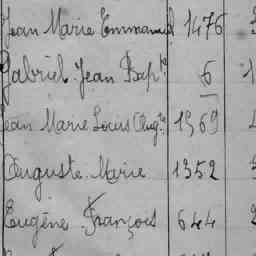 Jean Marie Emmanuel 1476
Gabriel Jean Bapte 6 1
Jean Marie Louis Augte 1369
Auguste Marie 1352
Eugène François 644 2